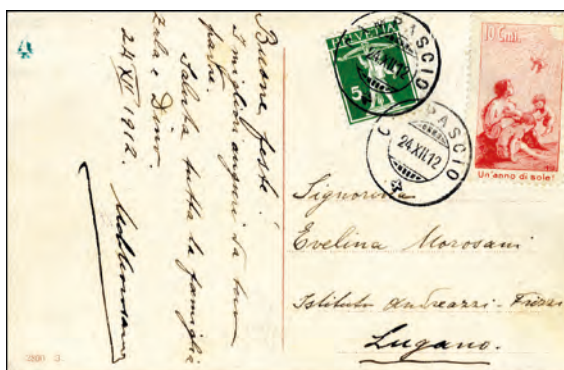 Buone feste!
I migliori auguri da tom
parta.
Saluta tutta la famiglia
Zula e Dino.
24 XII 1912.
HELVETIA
5
24.XII.12
PASCIO
24.XII.12
10 Cmi.
Un'anno di sole!
Signorina
Evelina Morosani
Istituto Andreazzi-
Lugano.
2800 3